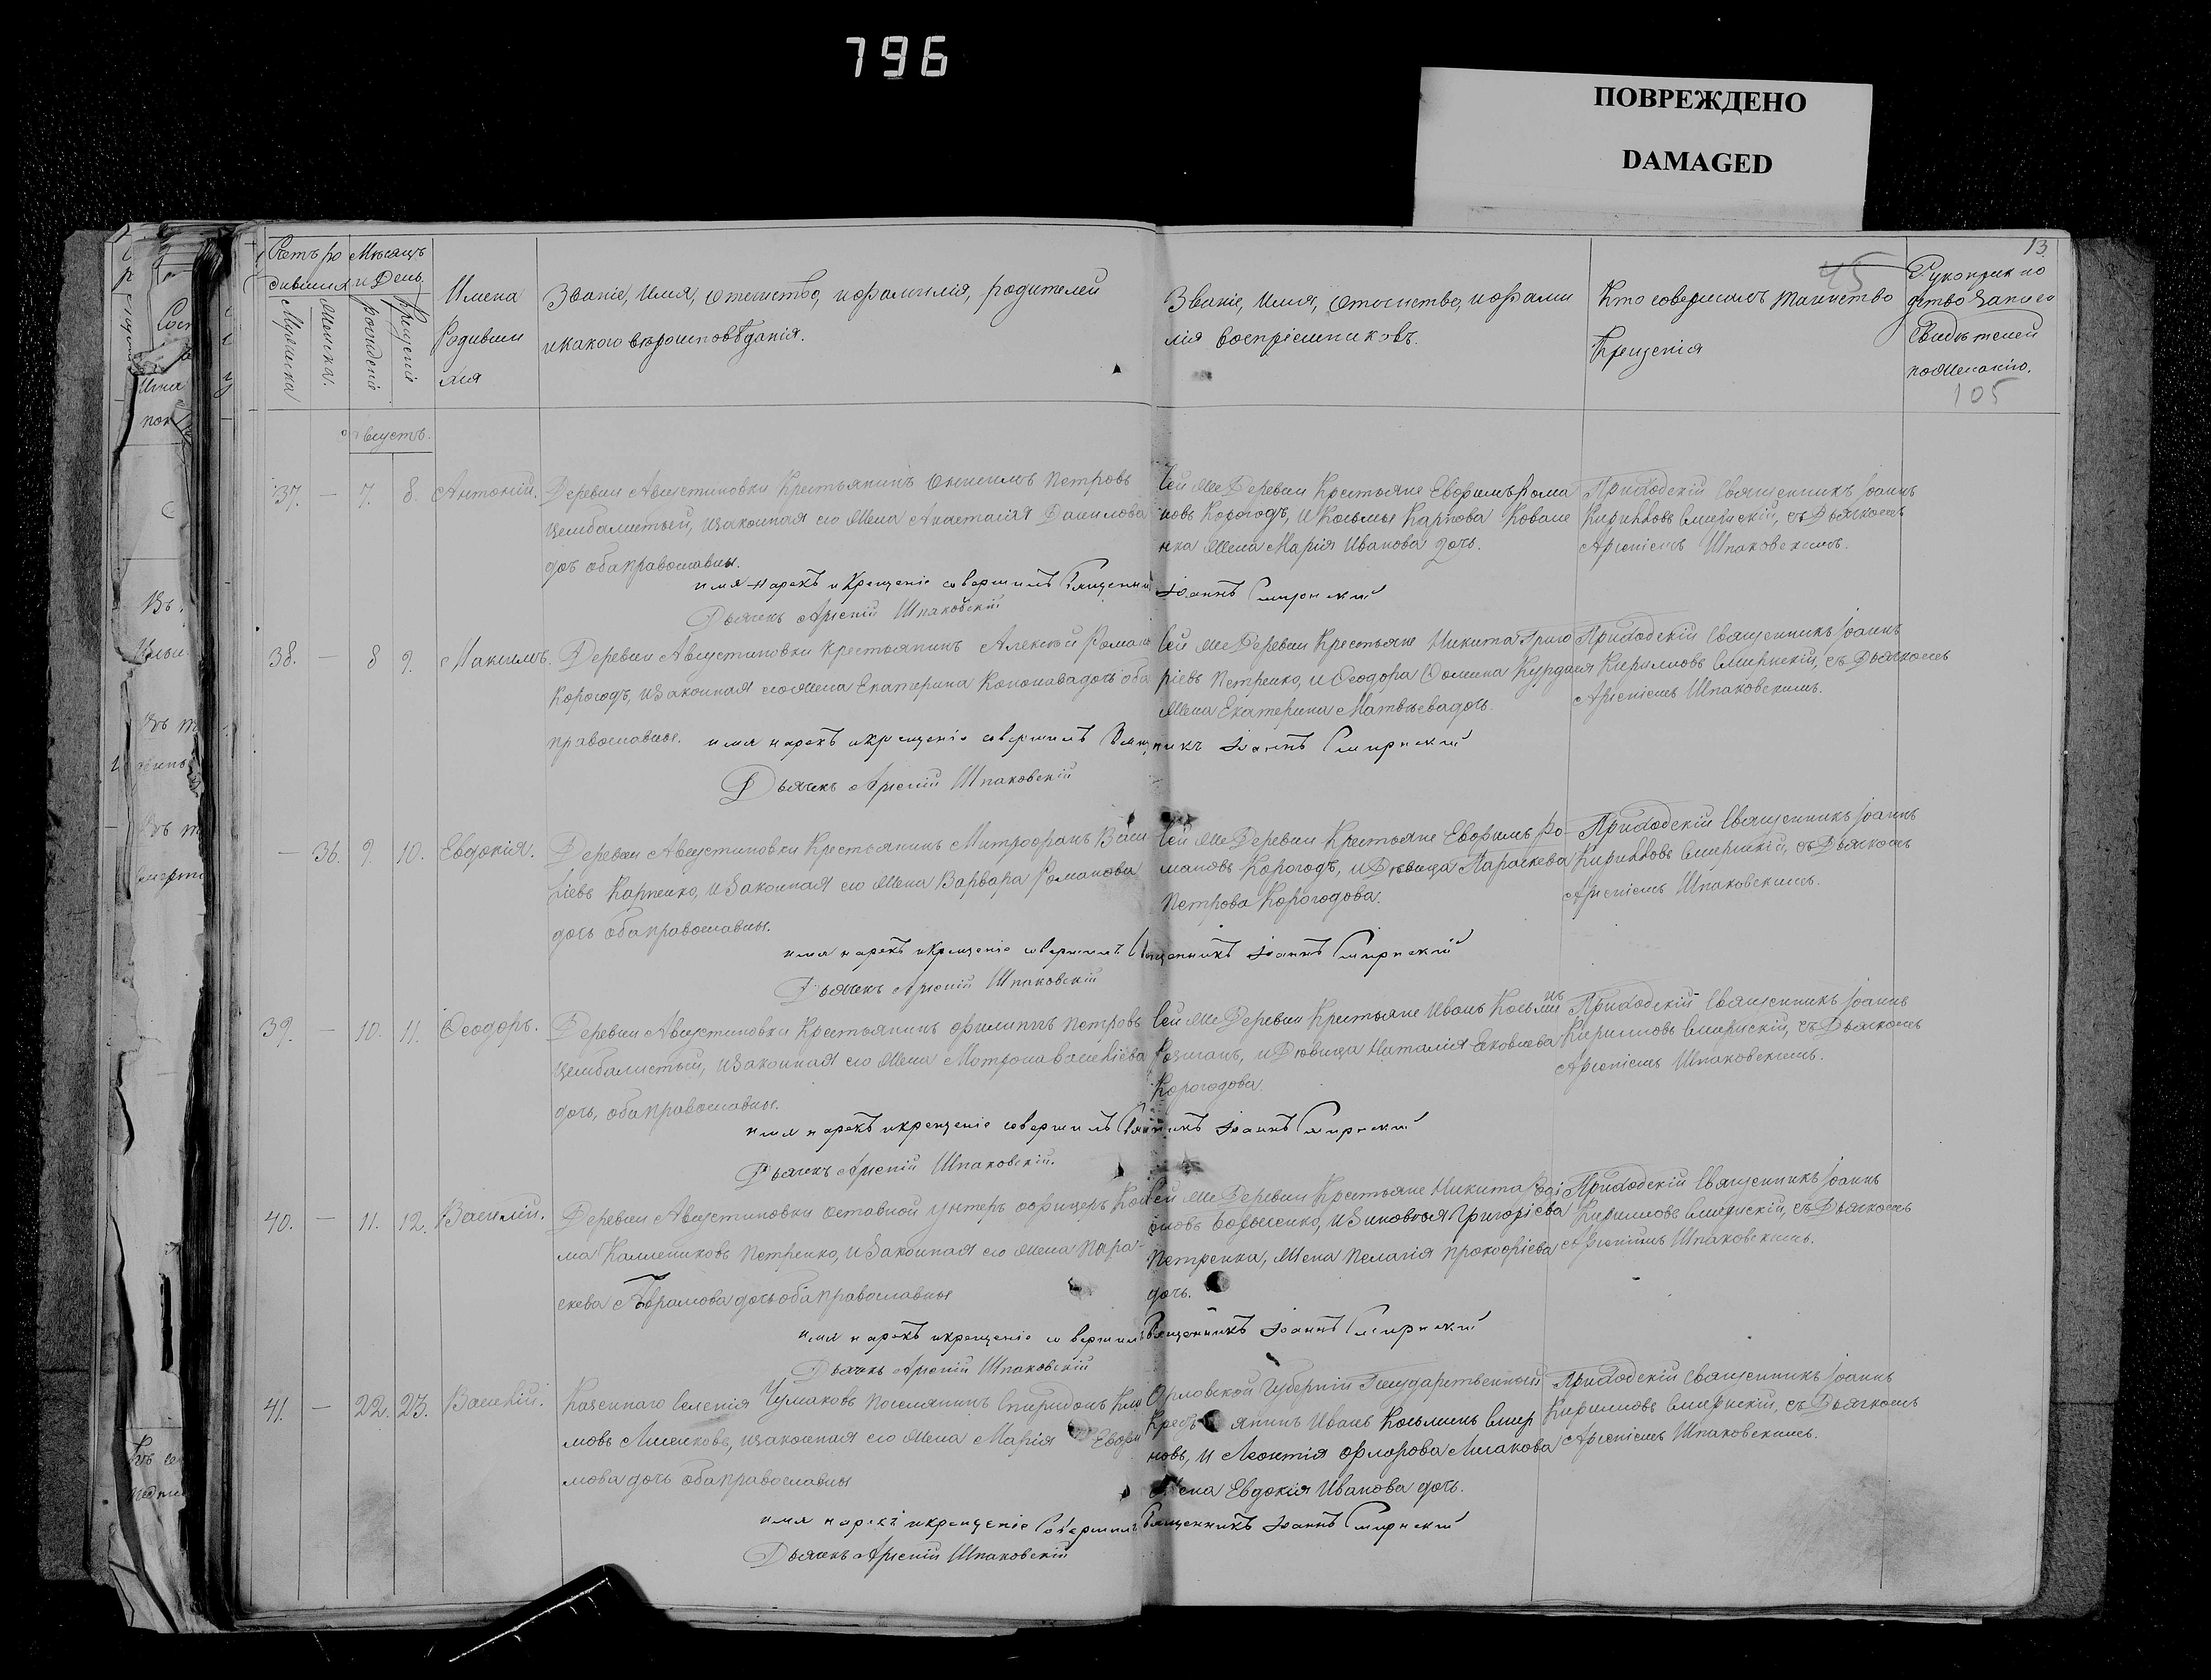 796
ПОВРЕЖДЕНО
DAMAGED
13
45
105
Счетъ ро
дившихся
Мужеска
Женска.
Мѣсяцъ
и День.
рожденія
Крещенія
Имена
Родивши
хся
Званіе, Имя, Отчество, и фамилія, родителей
и какого вѣроисповѣданія.
Званіе, имя, отчество, и фами
лія воспріемниковъ.
Кто совершилъ таинство
Крещенія
Рукоприкло
дство записи
Свидѣтелей
по желанію.
Августъ.
37. — 7. 8. Антоній.
Деревни Августиновки Крестьянинъ Онисимъ Петровъ
Цембалистый, и законная его жена Анастасія Данилова
дочь оба православны.
Сей же Деревни Крестьяне Евфимъ Рома
новъ Корогодъ, и Косьмы Карпова Ковале
нка жена Марія Иванова дочь.
Приходскій Священникъ Іоаннъ
Кирилловъ Смирнскій, съ Дьячкомъ
Арсеніемъ Шпаковскимъ.
имя нарекъ и крещеніе совершилъ Священник Іоаннъ Смирнский
Дьячекъ Арсеній Шпаковскій
38. — 8 9. Максимъ.
Деревни Августиновки Крестьянинъ Алексей Романов
Корогодъ, и законная его жена Екатерина Кононова дочь оба
православные.
Сей же Деревни Крестьяне Никита Григо
ріевъ Петренко, и Ѳеодора Ѳомина Курдая
жена Екатерина Матвѣева дочь.
Приходскій Священникъ Іоаннъ
Кирилловъ Смирнскій, съ Дьячкомъ
Арсеніемъ Шпаковскимъ.
имя нарекъ и крещеніе совершилъ Священникъ Іоаннъ Смирнский
Дьячекъ Арсеній Шпаковскій
— 36. 9. 10. Евдокія.
Деревни Августиновки Крестьянинъ Митрофанъ Васи
ліевъ Карпенко, и законная его жена Варвара Романова
дочь оба православны.
Сей же Деревни Крестьяне Евфимъ Ро-
мановъ Корогодъ, и Дѣвица Параскева
Петрова Корогодова.
Приходскій Священникъ Іоаннъ
Кирилловъ Смирнскій, съ Дьячкомъ
Арсеніемъ Шпаковскимъ.
имя нарекъ и крещеніе совершилъ Священникъ Іоаннъ Смирнский
Дьячекъ Арсеній Шпаковскій
39. — 10. 11. Ѳеодоръ.
Деревни Августиновки Крестьянинъ Филиппъ Петровъ
Цембалистый, и законная его жена Мотрона Василіева
дочь, оба православны.
Сей же Деревни Крестьяне Иванъ Косьминъ
и Дѣвица Наталія Яковлева
Корогодова.
Приходскій Священникъ Іоаннъ
Кирилловъ Смирнскій, съ Дьячкомъ
Арсеніемъ Шпаковскимъ.
имя нарекъ и крещеніе совершилъ Священникъ Іоаннъ Смирнский
Дьячекъ Арсеній Шпаковскій.
40. — 11. 12. Василій.
Деревни Августиновки Оставной унтеръ офицеръ
Петренко, и законная его жена Пара-
скева Аврамова дочь оба православные
Сей же Деревни Крестьяне Никита Роді
оновъ Борисенко, и Зиновія Григоріева
Петренка, жена Пелагія Прокофіева
дочь.
Приходскій Священникъ Іоаннъ
Кирилловъ Смирнскій, съ Дьячкомъ
Арсеніемъ Шпаковскимъ.
имя нарекъ и крещеніе совершилъ Священникъ Іоаннъ Смирнский
Дьячекъ Арсеній Шпаковскій
41. — 22. 23. Василій.
Казеннаго Селенія Чумаковъ Поселянинъ Спиридонъ Кли
мовъ и законная его жена Марія Евфи
мова дочь оба православны
Орловской Губерніи Государственный
Крестьянинъ Иванъ Косьминъ Смир
новъ, и Леонтія Флорова
жена Евдокія Иванова дочь.
Приходскій Священникъ Іоаннъ
Кирилловъ Смирнскій, съ Дьячкомъ
Арсеніемъ Шпаковскимъ.
имя нарекъ и крещеніе Совершилъ Священникъ Іоаннъ Смирнский
Дьячекъ Арсеній Шпаковскій